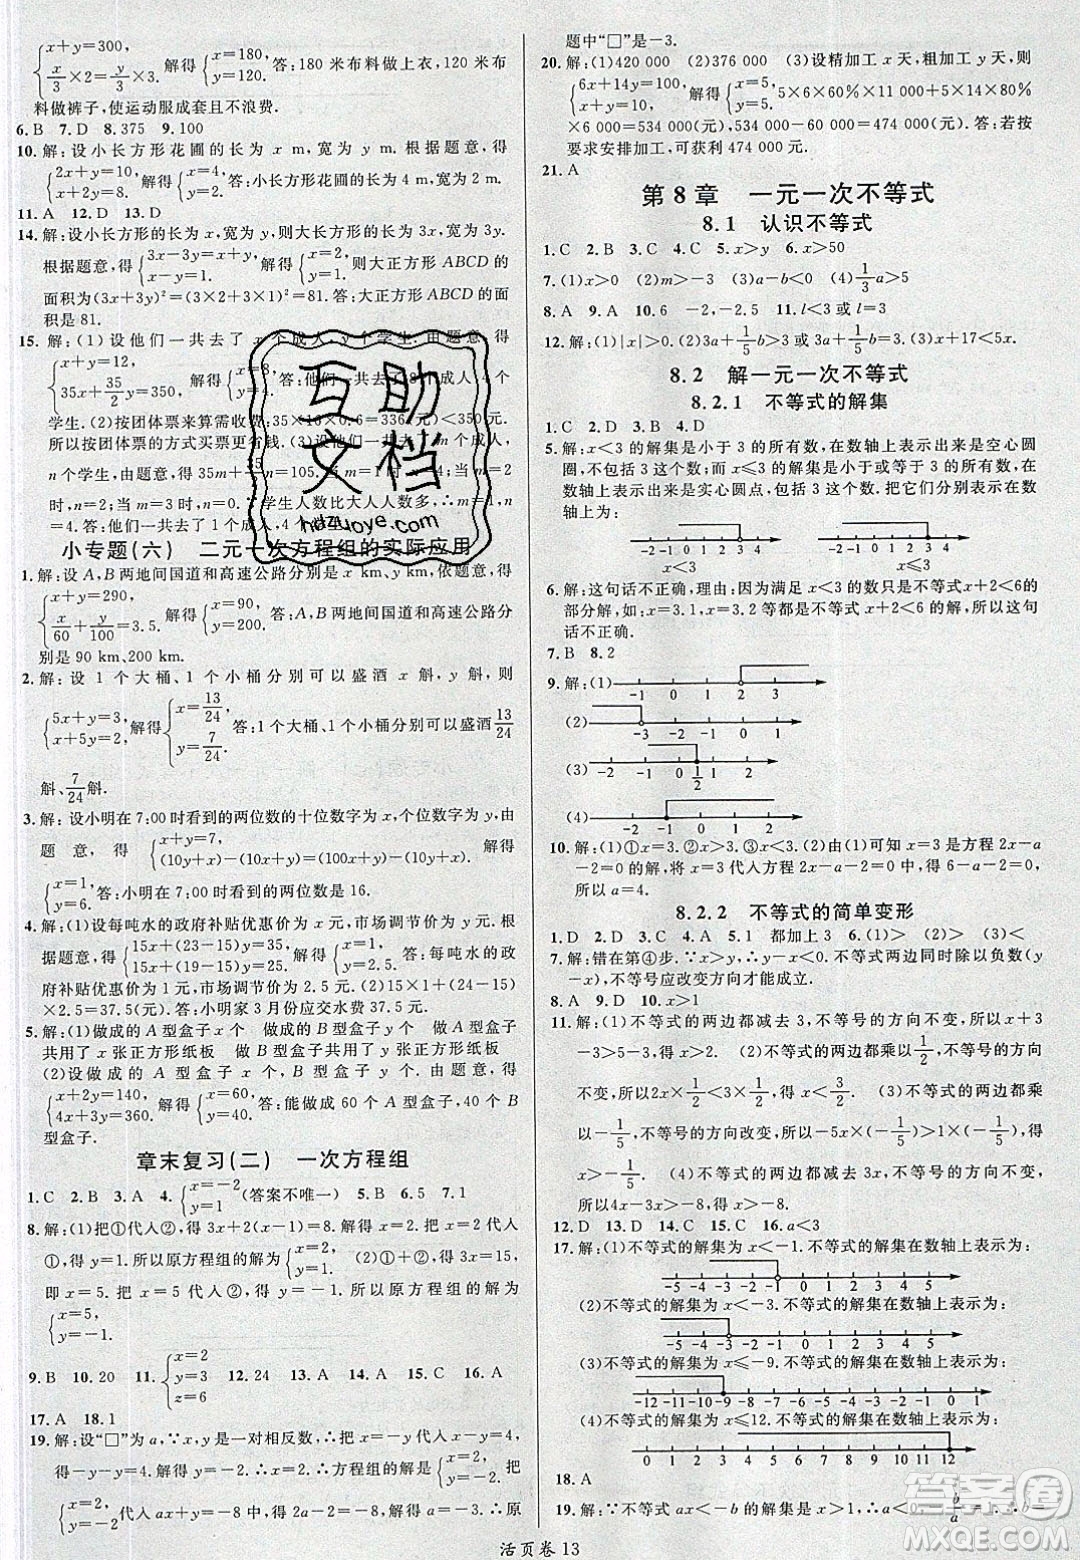 {x+y=300, x/3×2=y/3×3. 解得{x=180, y=120. 答:180 米布料做上衣,120 米布
料做裤子,使运动服成套且不浪费.
6.B 7.D 8.375 9.100
10.解:设小长方形花圃的长为 x m,宽为 y m.根据题意,得
{2x+y=10, x+2y=8. 解得{x=4, y=2. 答:小长方形花圃的长为 4 m,宽为 2 m.
11.A 12.D 13.D
14.解:设小长方形的长为 x,宽为 y,则大长方形的长为 3x,宽为 3y.
根据题意,得{3x-3y=3, x-y=1. 解得{x=2, y=1. 则大正方形 ABCD 的
面积为(2x+3y)²=(2×3+3)²=81.答:大正方形 ABCD 的面
积是 81.
15.解:(1)设他们一共去了 x 个成人,y 个学生.由题意,得
{x+y=12, 35x+35/2y=350. 解得{x=8, y=4. 答:他们一共去了 8 个成人,4 个
学生.(2)按团体票来算需收费:35×16×0.6=336(元).∵336<350,
所以按团体票的方式买票更省钱.(3)设他们一共去了 m 个成人,
n 个学生,由题意,得 35m+35/2n=105.当 m=1 时,n=4;当 m=2
时,n=2;当 m=3 时,n=0.∵学生人数比大人人数多,∴m=1,n=
4.答:他们一共去了 1 个成人,4 个学生.
小专题(六) 二元一次方程组的实际应用
1.解:设 A,B 两地间国道和高速公路分别是 x km、y km,依题意,得
{x+y=290, x/60+y/100=3.5. 解得{x=90, y=200. 答:A,B 两地间国道和高速公路分
别是 90 km、200 km.
2.解:设 1 个大桶、1 个小桶分别可以盛酒 x 斛,y 斛,则
{5x+y=3, x+5y=2. 解得{x=13/24, y=7/24. 答:1 个大桶、1 个小桶分别可以盛酒13/24
斛、7/24斛.
3.解:设小明在 7:00 时看到的两位数的十位数字为 x,个位数字为 y,由
题意,得{x+y=7, (10y+x)-(10x+y)=(100x+y)-(10y+x). 解得
{x=1, y=6. 答:小明在 7:00 时看到的两位数是 16.
4.解:(1)设每吨水的政府补贴优惠价为 x 元,市场调节价为 y 元.根
据题意,得{15x+(23-15)y=35, 15x+(19-15)y=25. 解得{x=1, y=2.5. 答:每吨水的政
府补贴优惠价为 1 元,市场调节价为 2.5 元.(2)15×1+(24-15)
×2.5=37.5(元).答:小明家 3 月份应交水费 37.5 元.
5.解:(1)做成的 A 型盒子 x 个 做成的 B 型盒子 y 个 做 A 型盒子
共用了 x 张正方形纸板 做 B 型盒子共用了 y 张正方形纸板
(2)设做成的 A 型盒子 x 个,B 型盒子 y 个.由题意,得
{x+2y=140, 4x+3y=360. 解得{x=60, y=40. 答:能做成 60 个 A 型盒子,40 个 B
型盒子.
章末复习(二) 一次方程组
1.C 2.B 3.A 4.{x=-2, y=1 (答案不唯一) 5.B 6.5 7.1
8.解:(1)把①代入②,得 3x+2(x-1)=8.解得 x=2.把 x=2 代入
①,得 y=1.所以原方程组的解为{x=2, y=1. (2)把①代入②,得
4+y=3.解得 y=-1.把 y=-1 代入①,得 x=5.所以原方程组的解为
即 x=5.把 x=5 代入②,得 y=-1.所以原方程组的解为
{x=5, y=-1.
9.B 10.20 11.{x=2 y=3 z=6 12.24 13.A 14.A 15.C 16.A
17.A 18.1
19.解:设“□”为 a,∵x,y 是一对相反数,∴把 x=-y 代入 x-y=4,
得-y-y=4.解得 y=-2.∴x=2.∴原方程组的解是{x=2, y=-2. 把
{x=2, y=-2. 代入 ax+y=-8,得 2a-2=-8.解得 a=-3.∴原
题中“□”是-3.
20.解:(1)420 000 (2)376 000 (3)设精加工 x 天,粗加工 y 天,则
{6x+14y=100, x+y=10. 解得{x=5, y=5. 5×6×60%×10 000+5×14×80%
×6 000=534 000(元),534 000-60 000=474 000(元).答:若按
要求安排加工,可获利 474 000 元.
21.A
第 8 章 一元一次不等式
8.1 认识不等式
1.C 2.B 3.C 4.C 5.x>y 6.x>50
7.(1)x>0 (2)m>-3 (3)a-b<0 (4)1/3a>5
8.A 9.A 10.6 -2,-2.5 11.l<3 或 l=3
12.(1)|x|>0.(2)3a+1/5b>2 或 3a+1/5b=2.(3)1/5x+17<5x.
8.2 解一元一次不等式
8.2.1 不等式的解集
1.C 2.D 3.B 4.D
5.解:x<3 的解集是小于 3 的所有数,在数轴上表示出来是空心圆
圈,不包括 3 这个数;而 x≤3 的解集是小于或等于 3 的所有数,在
数轴上表示出来是实心圆点,包括 3 这个数.把它们分别表示在数
轴上为:
-3 -2 -1 0 1 2 3 4 x<3 -3 -2 -1 0 1 2 3 4 x≤3
6.解:这句话不正确,理由:因为满足 x<3 的数是不等式 x+2<6的
部分解,如:x=3.1,x=3.2…都是不等式 x+2<6 的解,所以这句
话不正确.
7.B 8.2
9.解:(1) -1 0 1 2 3 4
(2) -3 -2 -1 0 1
(3) -2 -1 0 1/2 1 2
(4) -2 -1 0 1 2
10.解:(1)①x=3.②x>3.③x<3.(2)由(1)可知 x=3 是方程 2x-a
-2=0 的解,将 x=3 代入方程 2x-a-2=0,得 6-a-2=0,
所以 a=4.
8.2.2 不等式的简单变形
1.D 2.D 3.D 4.A 5.1 都加上 3 6.(1)> (2)> (3)<
7.解:错在第④步.∵x>y,∴y-x<0.不等式两边同时除以负数(y
-x),不等号应改变方向才能成立.
8.A 9.D 10.x>1
11.解:(1)不等式的两边都减去 3,不等号的方向不变,所以 x+3
-3>5-3,得 x>2.(2)不等式的两边都乘以1/2,不等号的方向
不变,所以2x×1/2<2×1/2,得 x<1.(3)不等式的两边都乘以
-1/5,不等号的方向改变,所以-5x×(-1/5)>1×(-1/5),得
x>-1/5.(4)不等式的两边都减去 3x,不等号的方向不变,
所以4x-3x>3x-8-3x,得 x>-8.
12.D 13.D 14.C 15.C 16.a<3
17.解:(1)不等式的解集为 x<-1.不等式的解集在数轴上表示为:
-5 -4 -3 -2 -1 0 1 2 3 4 5
(2)不等式的解集为 x<-3.不等式的解集在数轴上表示为:
-5 -4 -3 -2 -1 0 1 2 3 4 5
(3)不等式的解集为 x≤-9.不等式的解集在数轴上表示为:
-12-11-10-9-8-7-6-5-4-3-2-1 0
(4)不等式的解集为 x≤12.不等式的解集在数轴上表示为:
0 1 2 3 4 5 6 7 8 9 10 11 12
18.A
19.解:∵不等式 ax<-b 的解集是 x>1,∴a<0,-b/a
互助文档
hdzuoye.com
答案圈
MXQE.COM
活页卷 13